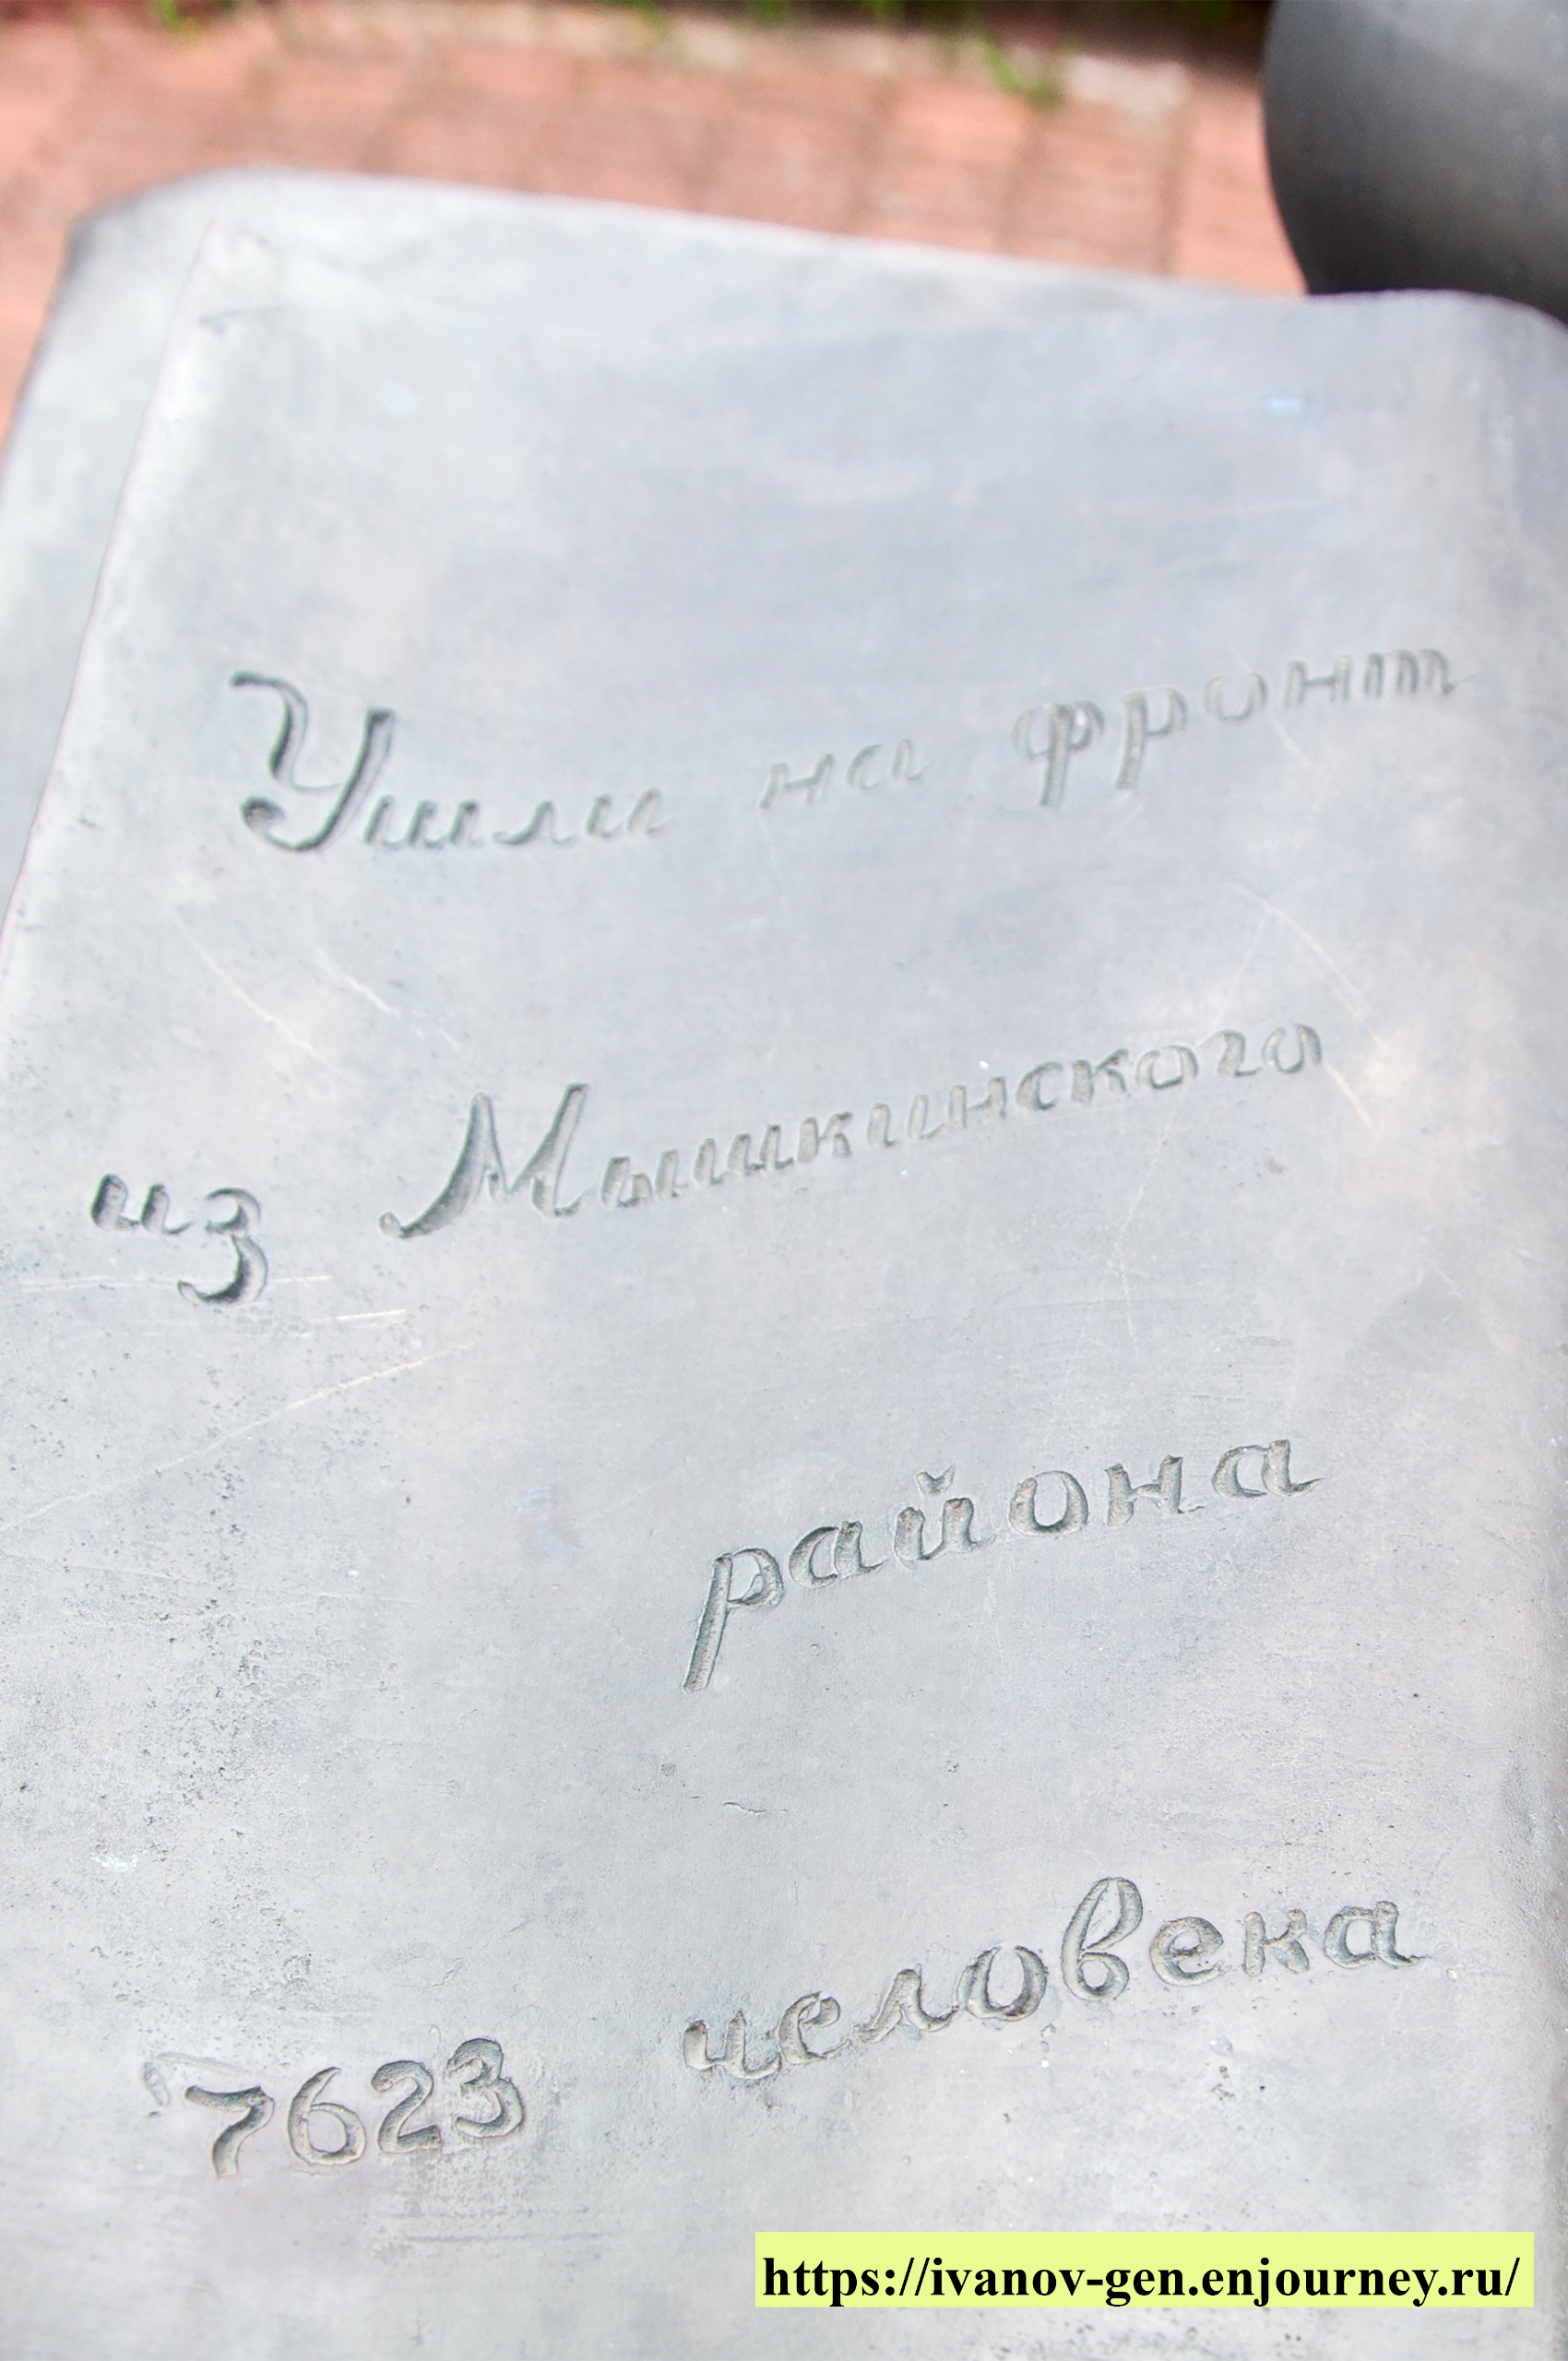 Ушли на фронт
из Мышкинского
района
7623 человека
https://ivanov-gen.enjourney.ru/